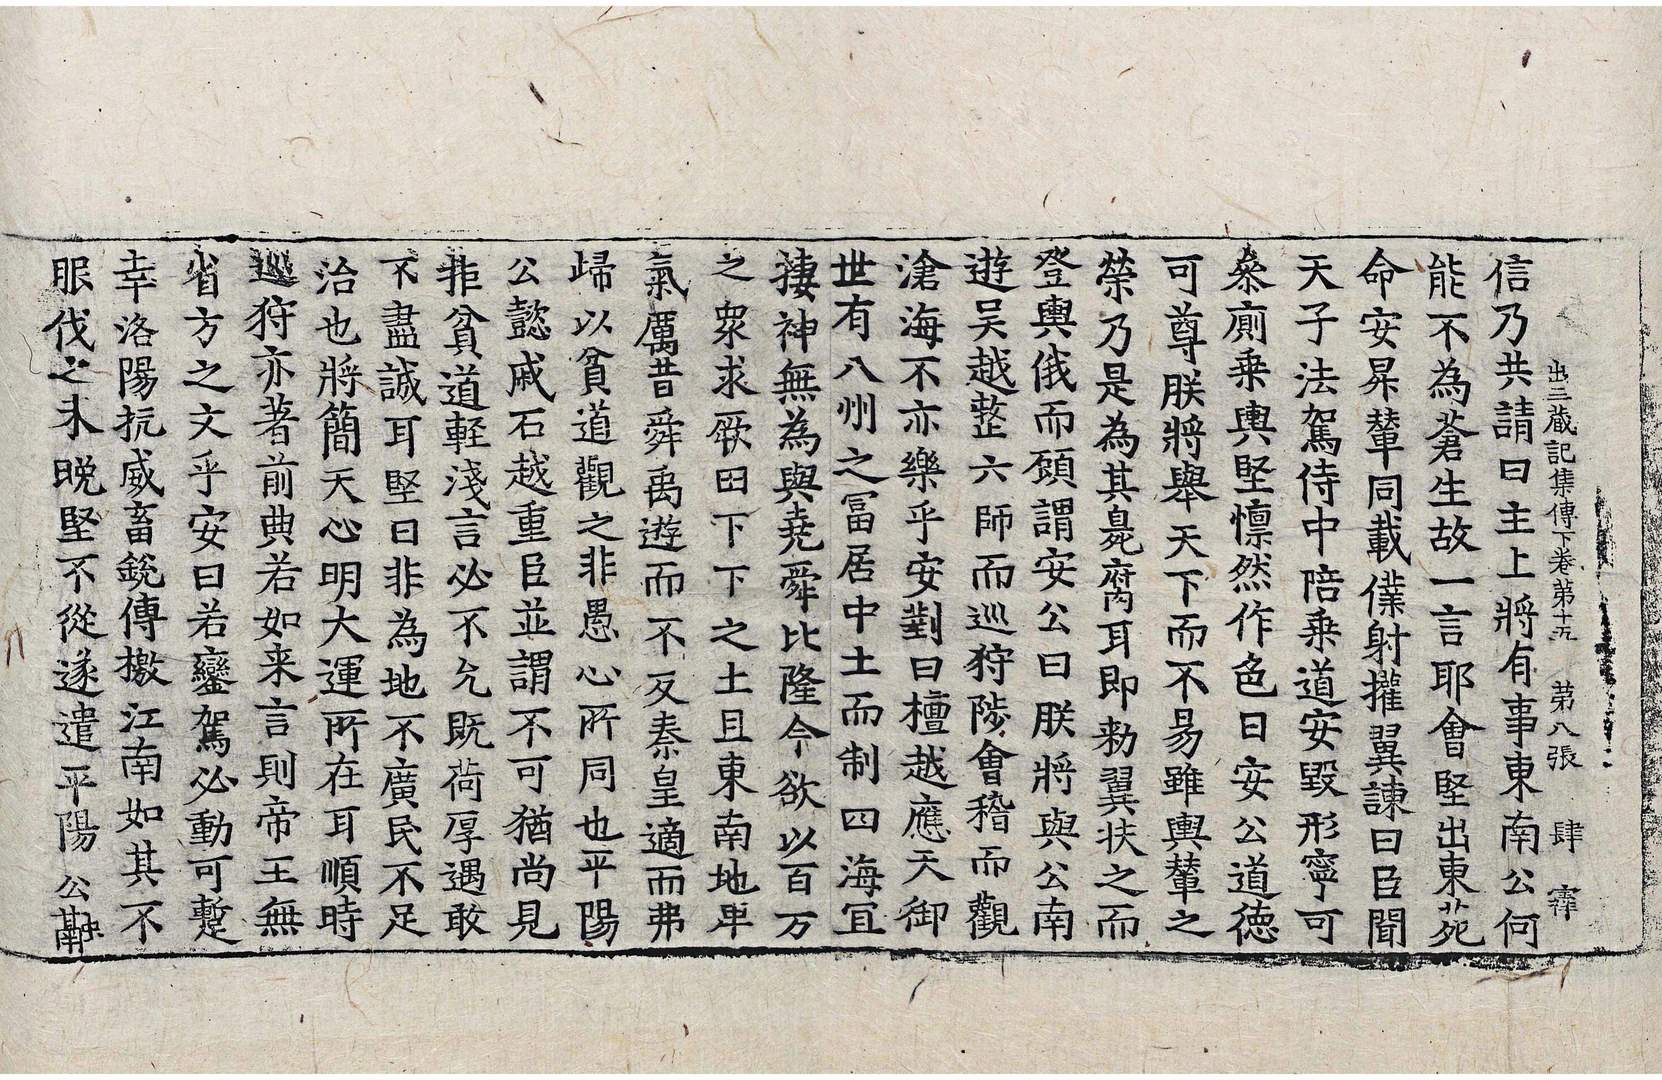 出三藏記集傳下卷第十五　第八張　肆　寧
信乃共請曰主上將有事東南公何
能不為蒼生故一言耶會堅出東苑
命安昇輦同載僕射權翼諫曰臣聞
天子法駕侍中陪乗道安毀形寧可
叅廁乗輿堅懍然作色曰安公道德
可尊朕將舉天下而不易雖輿輦之
榮乃是為其臰腐耳即勑翼扶之而
登輿俄而顧謂安公曰朕將與公南
遊吴越整六師而巡狩陟會稽而觀
滄海不亦樂乎安對曰檀越應天御
世有八州之冨居中土而制四海宜
捿神無為與堯舜比隆今欲以百万
之衆求厥田下下之土且東南地卑
氣厲昔舜禹遊而不反秦皇適而弗
歸以貧道觀之非愚心所同也平陽
公懿戚石越重臣並謂不可猶尚見
拒貧道軽淺言必不允既荷厚遇敢
不盡誠耳堅曰非為地不廣民不足
治也將簡天心明大運所在耳順時
巡狩亦著前典若如来言則帝王無
省方之文乎安曰若鑾駕必動可蹔
幸洛陽抗威畜銳傳檄江南如其不
服伐之未晚堅不從遂遣平陽公